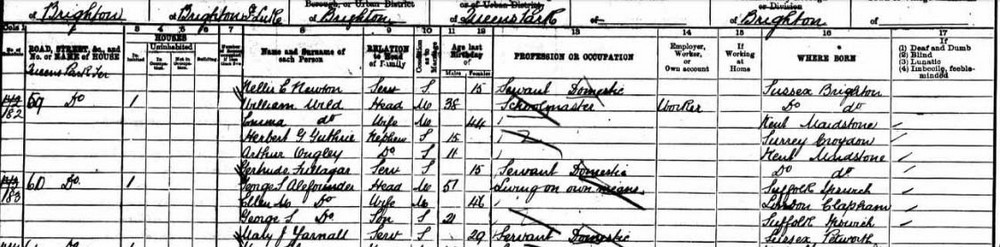 Borough, or Urban District
of Brighton of Brighton St Luke of Brighton of Queens Park of — of Brighton of
1 2 3 4 5 6 7 8 9 10 11 12 13 14 15 16 17
ROAD, STREET, &c., and No. or NAME of HOUSE HOUSES Inhabited Uninhabited Building Name and Surname of each Person RELATION to Head of Family Condition as to Marriage Age last Birthday of Males Females PROFESSION OR OCCUPATION Employer, Worker, or Own account If Working at Home WHERE BORN If (1) Deaf and Dumb (2) Blind (3) Lunatic (4) Imbecile, feeble-minded
Queens Park Ter
Nellie E Newton Serv S 15 Servant Domestic Sussex Brighton
182 59 Do 1 William Weld Head M 38 Schoolmaster Worker Do do
Emma do Wife M 44 Kent Maidstone
Herbert G Guthrie Nephew S 15 Surrey Croydon
Arthur Ongley Do S 11 Kent Maidstone
Gertrude Serv S 15 Servant Domestic Do do
183 60 Do. 1 George S Alefounder Head M 57 Living on own means Suffolk Ipswich
Ellen M Do Wife M 46 London Clapham
George S Do Son S 21 Suffolk Ipswich
Mary J Yarnall Serv S 29 Servant Domestic Sussex Petworth